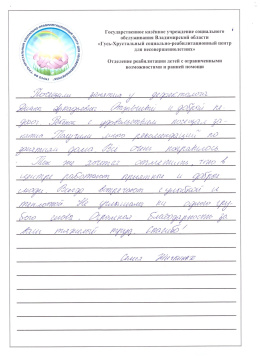 Государственное казённое учреждение социального
обслуживания Владимирской области
«Гусь-Хрустальный социально-реабилитационный центр
для несовершеннолетних»
Отделение реабилитации детей с ограниченными
возможностями и ранней помощи
Посещали занятия у дефектолога
Отзывчивый и добрый пе-
дагог. с удовольствием посещал за-
нятия. Получили много рекомендаций по
занятиям дома. Все очень понравилось.
Так же хочется отметить, что в
центре работают приятные и добрые
люди. Всегда встречают с улыбкой и
теплотой. Не услышали ни одного гру-
бого слова. Огромная благодарность за
ваш тяжелый труд. Спасибо!
Семья